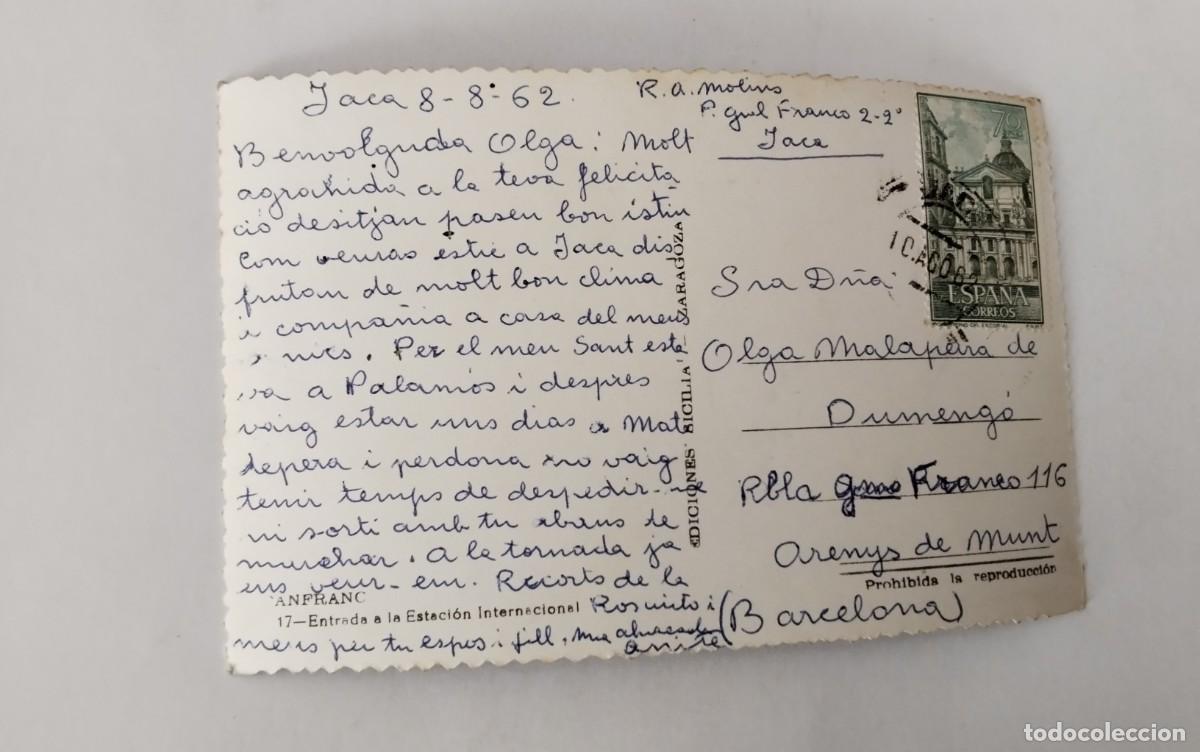 Jaca 8-8-62.
Benvolguda Olga: Molt
agrahida a la teva felicita
ció desitjan pasen bon istiu
Com veuras estic a Jaca dis
frutan de molt bon clima
i compañia a casa del meus
. Per el meu Sant esta
va a Palamós i despres
vaig estar uns dias a Mat
depera i perdona no vaig
tenir temps de despedir-me
ni sorti amb tu abans de
marchar. A la tornada ja
ens veur-em. Recorts de la
Rosinto i
meus per tu espos i fill, Una abraçada
Anita
CANFRANC
17—Entrada a la Estación Internacional
EDICIONES SICILIA - ZARAGOZA
R. A. Molins
P. Gral Franco 2-2º
Jaca
70
ESPAÑA
CORREOS
JACA
10.AGO.62
Sra Dña
Olga Malapeira de
Dumengó
Rbla Gmo Franco 116
Arenys de Munt
Prohibida la reproducción
(Barcelona)
todocoleccion